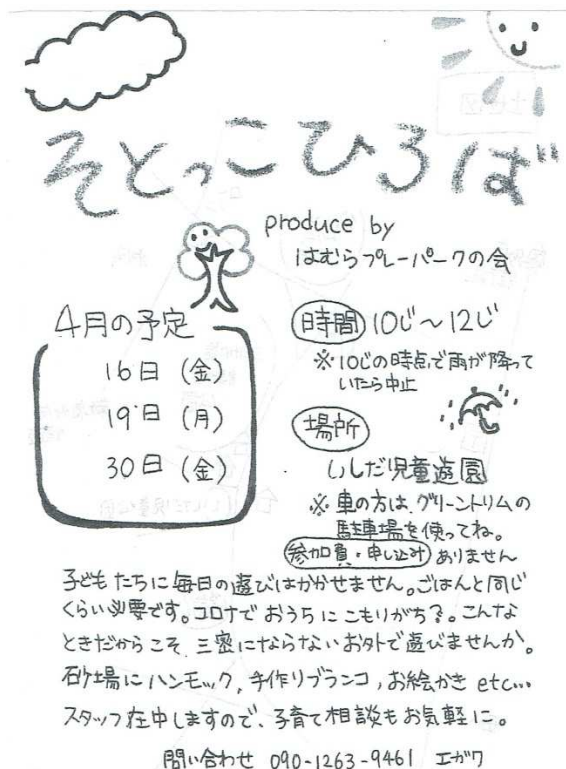 そとっこひろば
produce by
はむらプレーパークの会
4月の予定
16日（金）
19日（月）
30日（金）
時間 10じ～12じ
※10じの時点で雨が降って
いたら中止
場所
いしだ児童遊園
※車の方は、グリーントリムの
駐車場を使ってね。
参加費・申し込み ありません
子どもたちに毎日の遊びはかかせません。ごはんと同じ
くらい必要です。コロナでおうちにこもりがち？。こんな
ときだからこそ、三密にならないお外で遊びませんか。
砂場にハンモック，手作りブランコ，お絵かき etc...
スタッフ在中しますので、子育て相談もお気軽に。
問い合わせ 090-1263-9461 エガワ